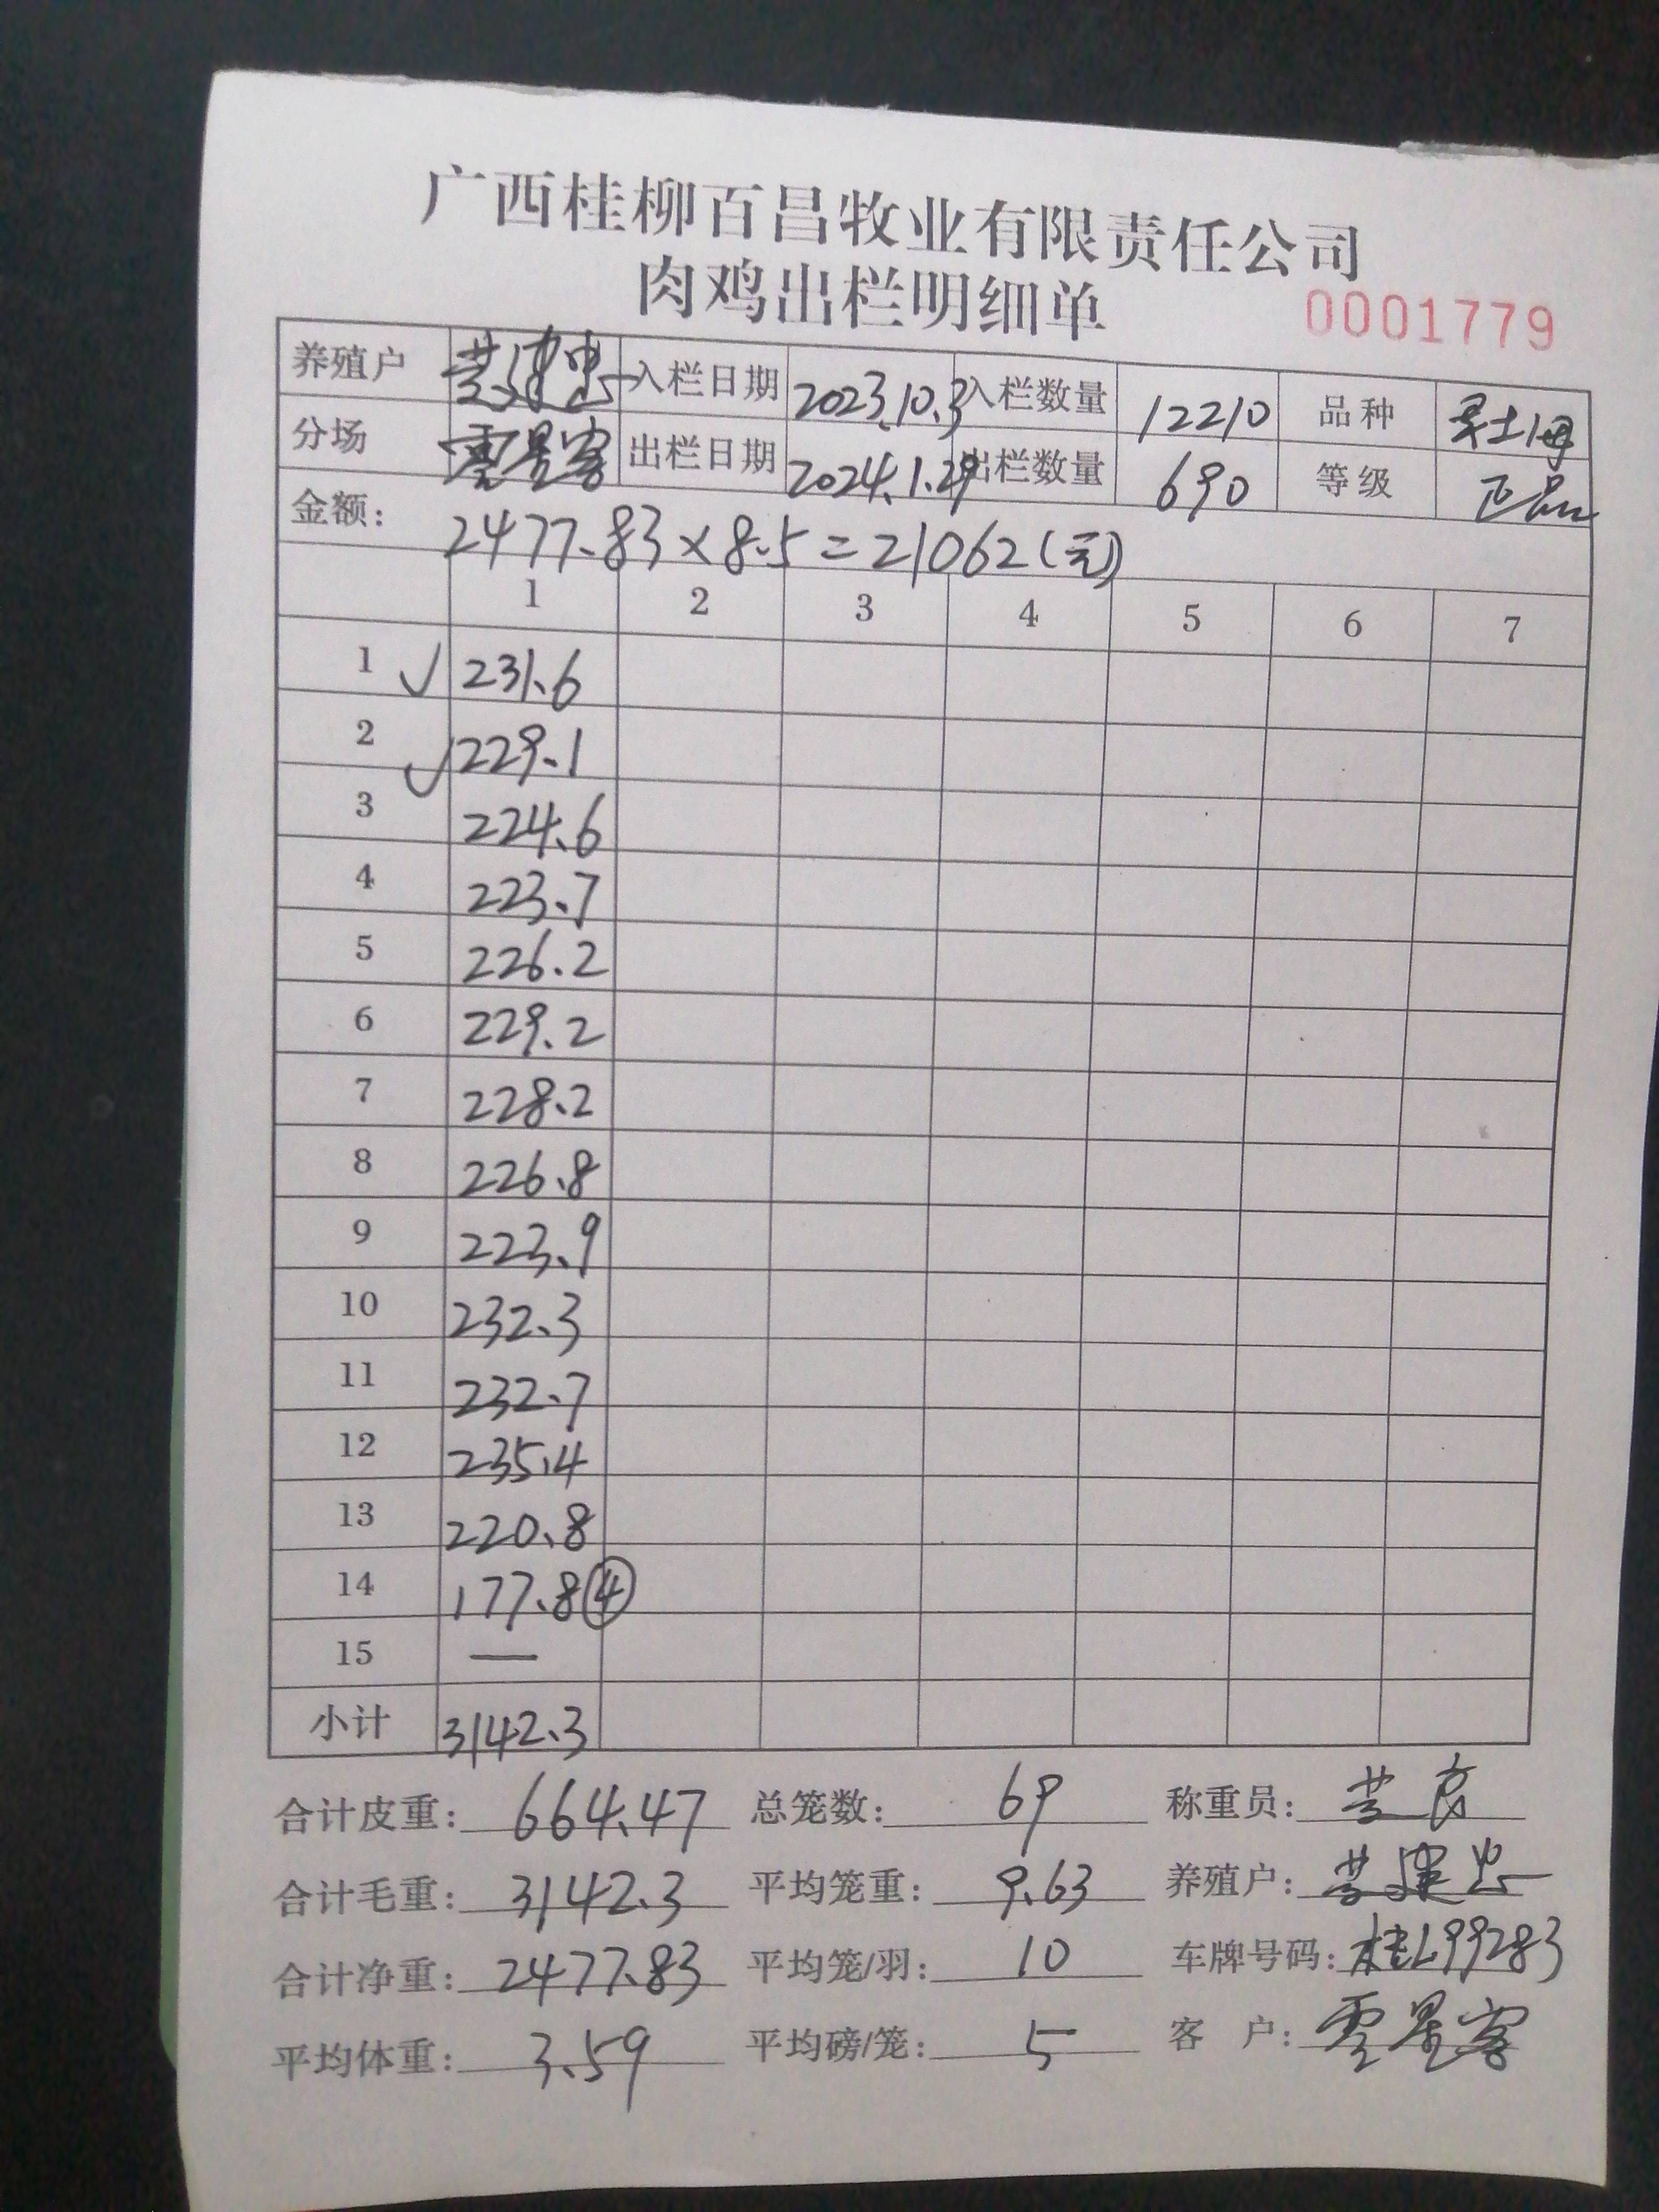 广西桂柳百昌牧业有限责任公司
肉鸡出栏明细单
0001779
养殖户 入栏日期 2023.10.3 入栏数量 12210 品种
分场 零星客 出栏日期 2024.1.29 出栏数量 690 等级 正品
金额: 2477.83×8.5=21062(元)
1 2 3 4 5 6 7
1 ✓ 231.6
2 ✓ 229.1
3 224.6
4 223.7
5 226.2
6 229.2
7 228.2
8 226.8
9 223.9
10 232.3
11 232.7
12 235.4
13 220.8
14 177.8④
15 —
小计 3142.3
合计皮重: 664.47 总笼数: 69 称重员:
合计毛重: 3142.3 平均笼重: 9.63 养殖户:
合计净重: 2477.83 平均笼/羽: 10 车牌号码: 桂L99283
平均体重: 3.59 平均磅/笼: 5 客户: 零星客